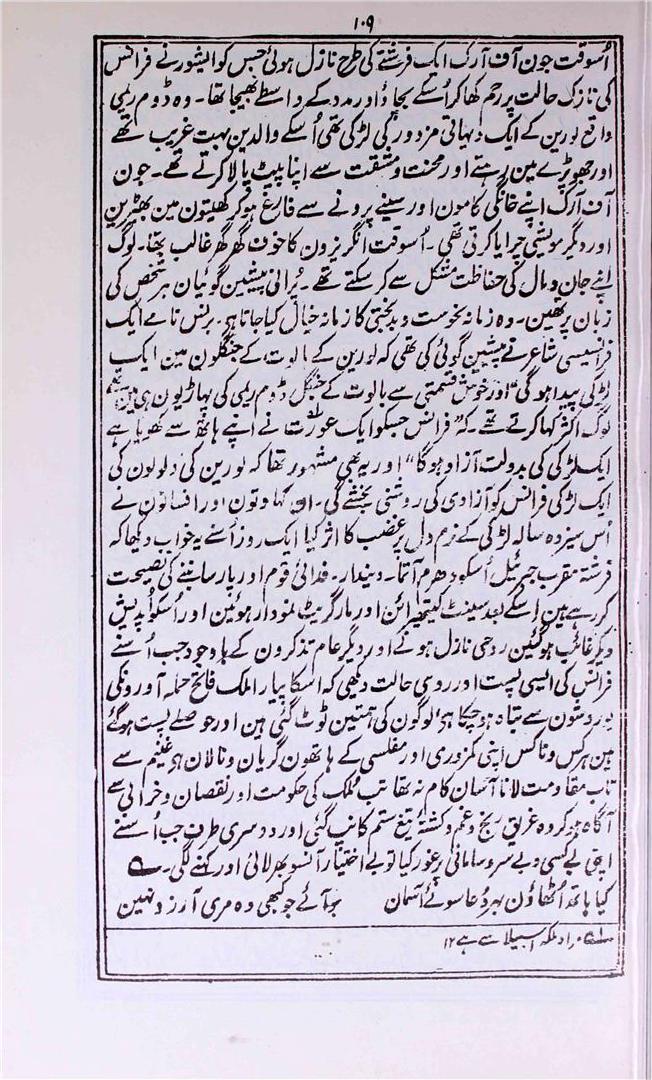 ۱۰۹
اُسوقت جون آف آرک ایک فرشتے کی طرح نازل ہوئی جس کو ایشور نے فرانس
کی نازک حالت پر رحم کھا کر اُسکے بچاؤ اور مدد کے واسطے بھیجا تھا۔ وہ ڈوم ریمی
واقع لورین کے ایک دہیاتی مزدور کی لڑکی تھی اُسکے والدین بہت غریب تھے
اور جھوپڑے مین رہتے اور محنت و مشقت سے اپنا پیٹ پالا کرتے تھے۔ جون
آف آرک اپنے خانگی کامون اور سینے پرونے سے فارغ ہو کر کھیتون مین بھیڑین
اور دیگر مویشی چرایا کرتی تھی۔ اُسوقت انگریزون کا خوف گھر گھر غالب تھا۔ لوگ
اپنے جان و مال کی حفاظت مشکل سے کر سکتے تھے۔ پُرانی پیشین گوئیان ہر شخص کی
زبان پر تھین۔ وہ زمانہ نحوست و بدبختی کا زمانہ خیال کیا جاتا ہی۔ برنس نامے ایک
فرانسیسی شاعر نے پیشین گوئی کی تھی کہ لورین کے بالوت کے جنگلون مین ایک
لڑکی پیدا ہوگی" اور خوش قسمتی سے بالوت کے جنگل ڈوم ریمی کی پہاڑیون ہی مین تھے
لوگ اکثر کہا کرتے تھے۔ کہ "فرانس جسکو ایک عورت نے اپنے ہاتھ سے کھویا ہے
ایک لڑکی کی بدولت آزاد ہوگا" اور یہ بھی مشہور تھا کہ لورین کی دلولون کی
ایک لڑکی فرانس کو آزادی کی روشنی بخشے گی۔ ان کہاوتون اور افسانون نے
اُس سیزدہ سالہ لڑکی کے نرم دل پر غضب کا اثر کیا ایک روز اُسنے یہ خواب دیکھا کہ
فرشتۂ مقرب جبرئیل اُسکو دھرم آتما۔ دیندار۔ فدائی قوم اور پارسا بننے کی نصیحت
کر رہے ہین اسکے بعد سینٹ کیتھیرائن اور مارگریٹ نمودار ہوئین اور اُسکو اُپدیش
دیکر غائب ہوگئین روحی نازل ہوئے اور دیگر عام تذکرون کے باوجود جب اُسنے
فرانس کی ایسی پست اور ردی حالت دیکھی کہ اسکا پیارا ملک فاتح حملہ آورونکی
یوروشون سے تباہ ہوچکا ہو لوگون کی ہمتین ٹوٹ گئی ہین اور حوصلے پست ہوگئے
ہین ہر کس و ناکس اپنی کمزوری اور مفلسی کے ہاتھون گریان و نالان ہو غنیم سے
تاب مقاومت لانا آسان کام نہ تھا تب ملک کی حکومت اور نقصان و خرابی سے
آگاہ ہو کر وہ غریق رنج و غم و کشتۂ تیغ ستم کانپ گئی اور دوسری طرف جب اُسنے
اپنی بے کسی و بے سروسامانی پر غور کیا تو بے اختیار آنسو بھر لائی اور کہنے لگی۔ ؎
کیا ہاتھ اُٹھاؤن بہر دُعا سوئے آسمان بر آئے جو کبھی وہ مری آرزو نہین
؎۱ مراد ملکہ اسبیلا سے ہے ۱۲